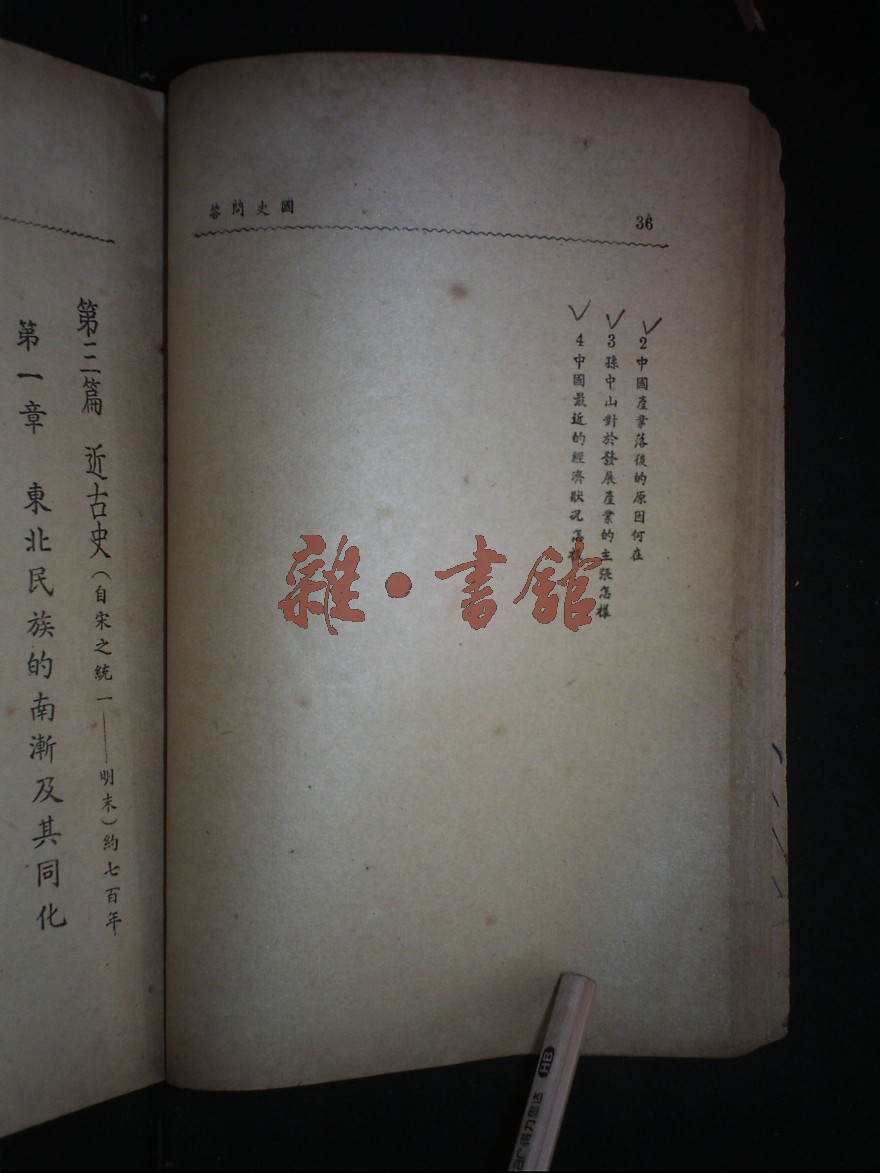 國史問答
36
2中國產業落後的原因何在
3孫中山對於發展產業的主張怎樣
4中國最近的經濟狀况怎
第三篇 近古史（自宋之統一——明末）約七百年
第一章 東北民族的南漸及其同化
雜·書館
HB
得力思达